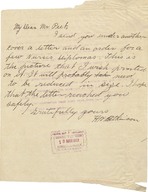 My Dear Mr Peck
I send you under another
cover a letter and an order for a
few more diplomas. This is
the picture that I wish printed
on it. It will probably have
to be reduced in size. Hope
that the letter reached you
safely.
Gratefully yours